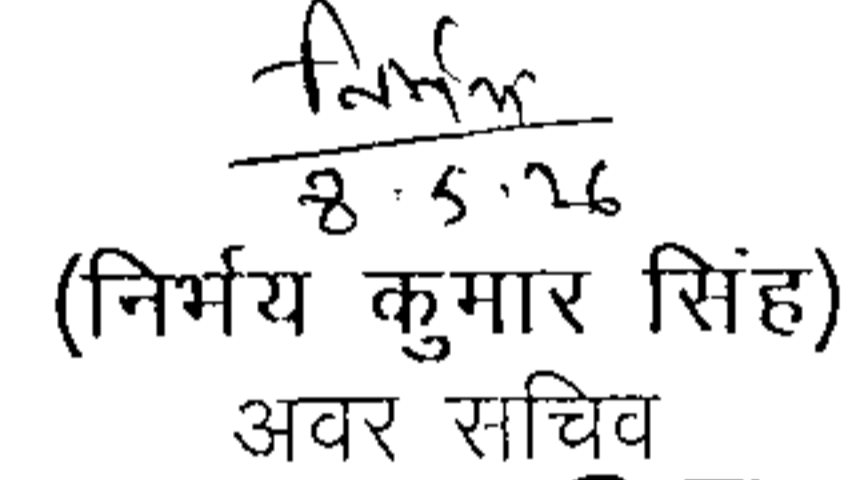 निर्भय
8.5.26
(निर्भय कुमार सिंह)
अवर सचिव